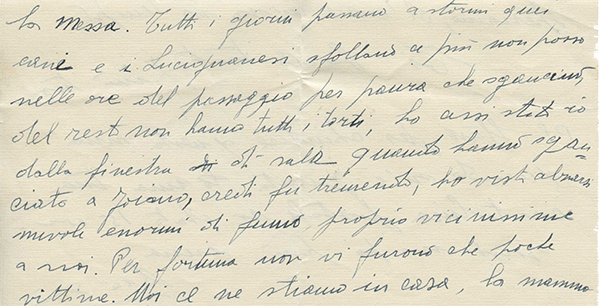 la Messa. Tutti i giorni passano a stormi quei
cani e i Lucignanesi sfollano a più non posso
nelle ore del passaggio per paura che sgancino,
del resto non hanno tutti i torti, ho assistito io
dalla finestra di sala quando hanno sgan-
ciato a Foiano, credi fu tremendo, ho visto alzarsi
nuvole enormi di fumo, proprio vicinissime
a noi. Per fortuna non vi furono che poche
vittime. Noi ce ne stiamo in casa, la mamma